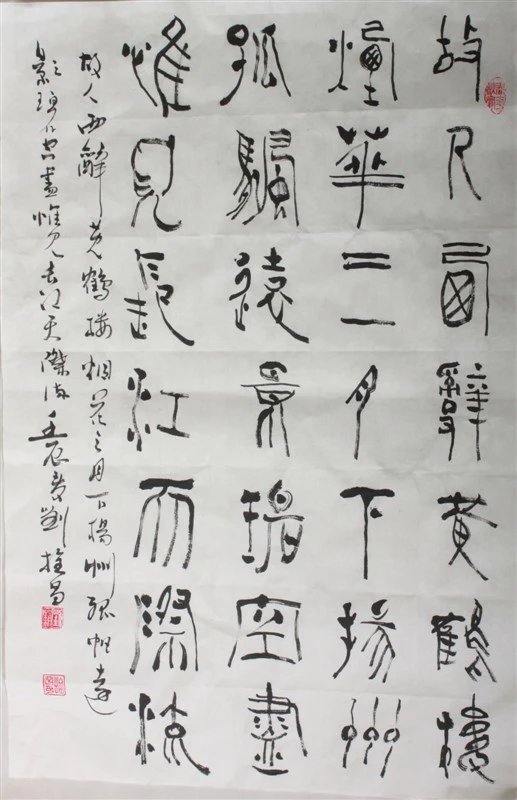 故人西辭黃鶴樓
煙華三月下揚州
孤颿遠景碧空盡
惟見長江天際流
故人西辭黃鶴樓烟花三月下揚州孤帆遠
影碧空盡惟見長江天際流壬辰夏劉